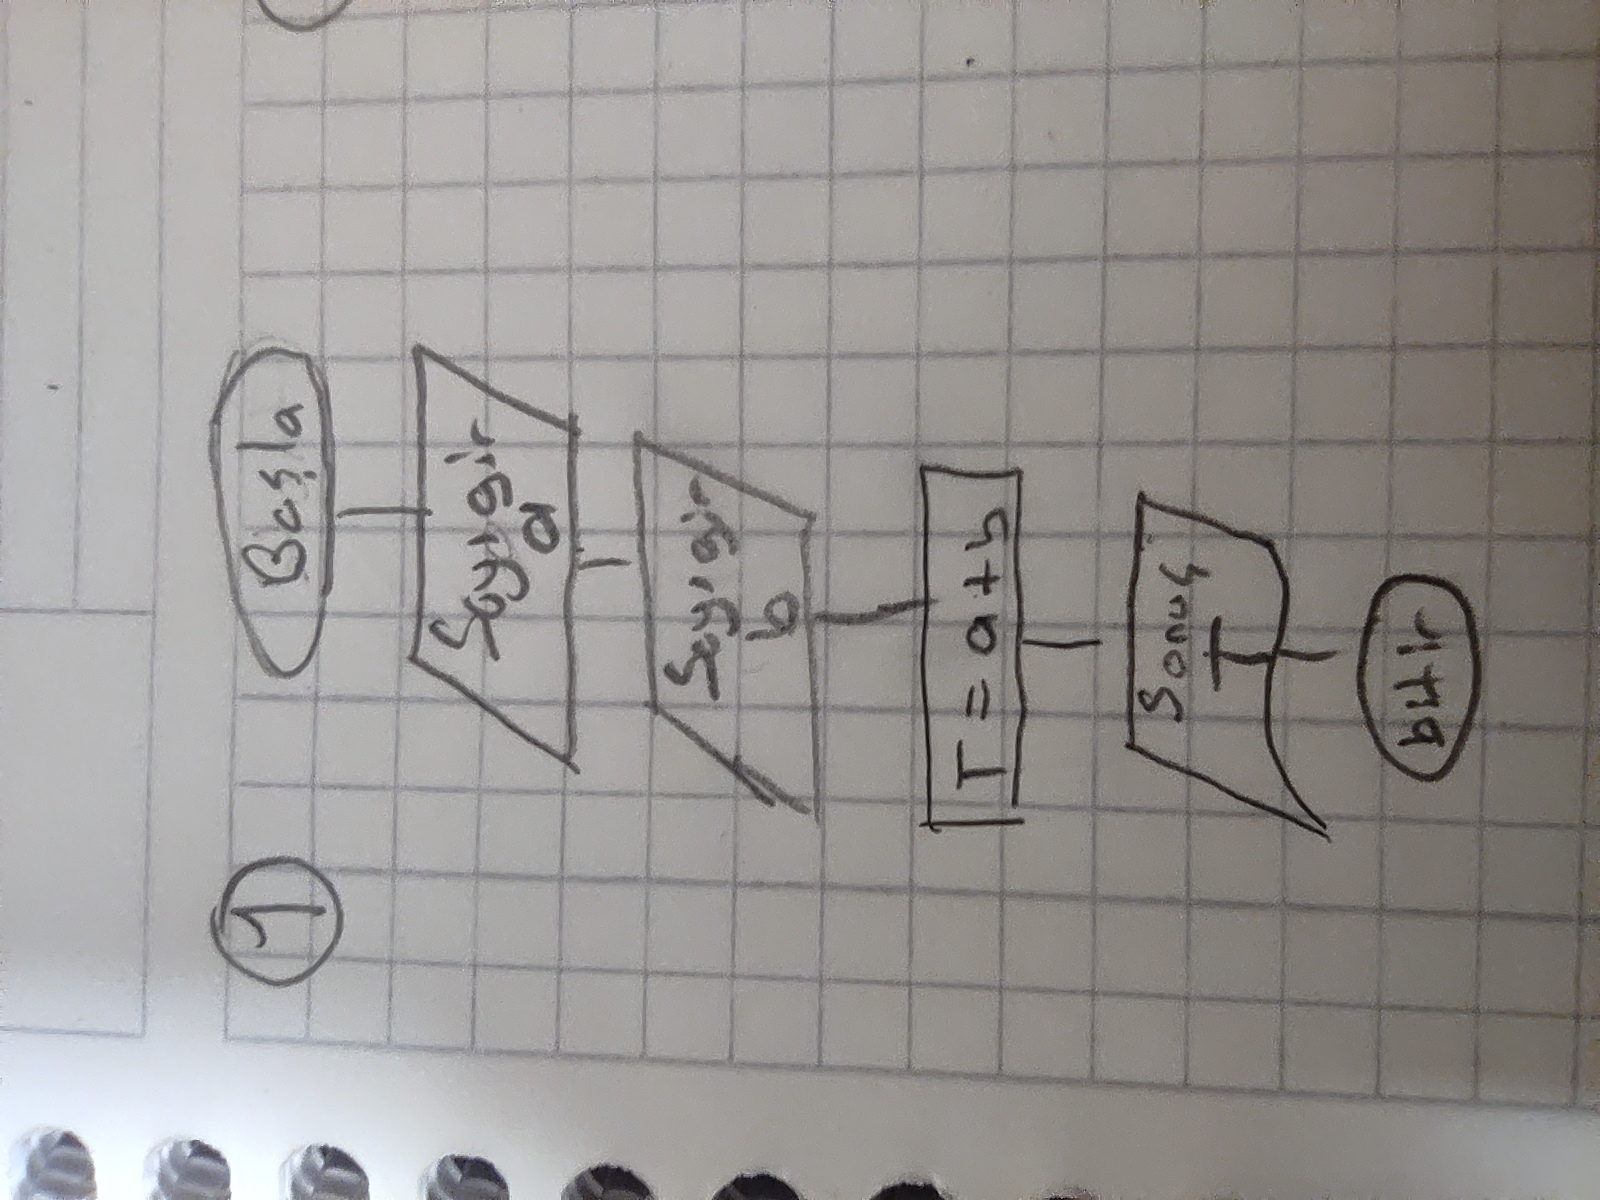 1
Başla
Sayı gir
a
Sayı gir
b
T = a + b
Sonuç
T
bitir